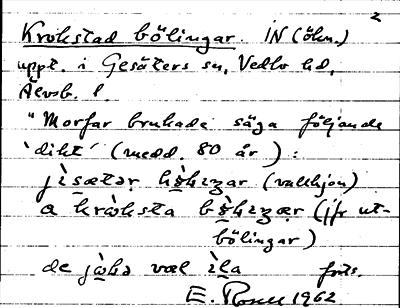 2
Krokstad bölingar. IN (öhn.)
uppt. i Gesäters sn, Vedbo hd,
Älvsb. l.
"Morfar brukade säga följande
'dikt' (medd. 80 år):
jìsætər (vallhjon)
a kràksta (jfr ut-
bölingar)
de væl ìla forts.
E. 1962